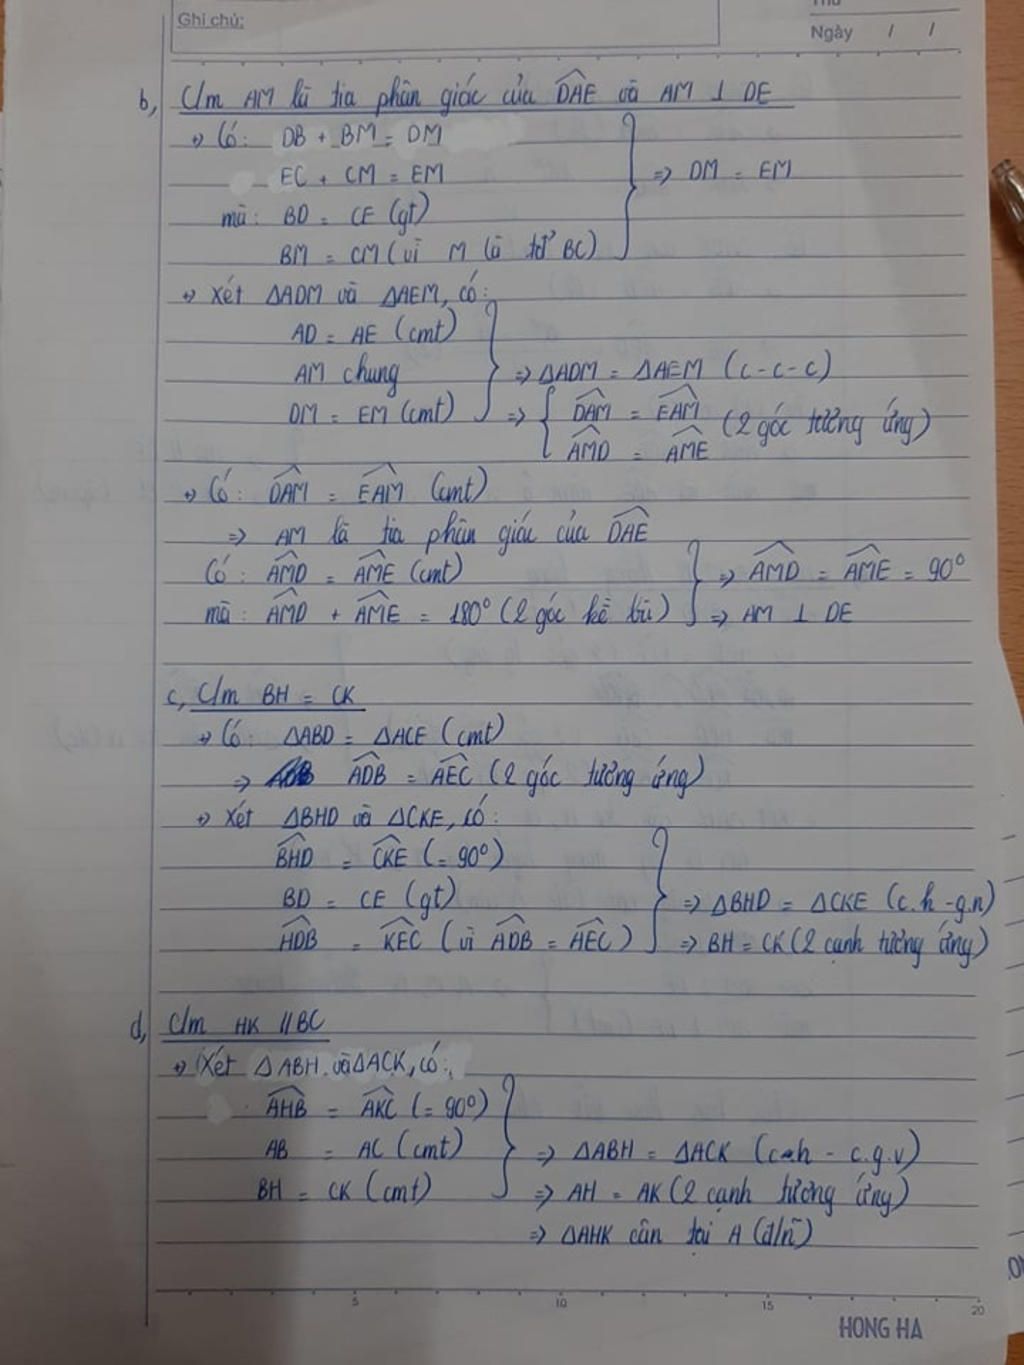 Ghi chú:
Thứ
Ngày / /
b, C/m AM là tia phân giác của DAE và AM ⊥ DE
→ Có: DB + BM = DM
EC + CM = EM
mà: BD = CE (gt)
BM = CM (vì M là tđ BC)
⇒ DM = EM
→ Xét ΔADM và ΔAEM, có:
AD = AE (cmt)
AM chung
DM = EM (cmt)
⇒ ΔADM = ΔAEM (c-c-c)
⇒ { DAM = EAM (2 góc tương ứng)
AMD = AME
→ Có: DAM = EAM (cmt)
⇒ AM là tia phân giác của DAE
Có: AMD = AME (cmt)
mà: AMD + AME = 180° (2 góc kề bù)
⇒ AMD = AME = 90°
⇒ AM ⊥ DE
c, C/m BH = CK
→ Có: ΔABD = ΔACE (cmt)
⇒ ADB = AEC (2 góc tương ứng)
→ Xét ΔBHD và ΔCKE, có:
BHD = CKE (= 90°)
BD = CE (gt)
HDB = KEC (vì ADB = AEC)
⇒ ΔBHD = ΔCKE (c.h - g.n)
⇒ BH = CK (2 cạnh tương ứng)
d, C/m HK // BC
→ Xét ΔABH và ΔACK, có:
AHB = AKC (= 90°)
AB = AC (cmt)
BH = CK (cmt)
⇒ ΔABH = ΔACK (c-h - c.g.v)
⇒ AH = AK (2 cạnh tương ứng)
⇒ ΔAHK cân tại A (đ/n)
5 10 15 20
HONG HA